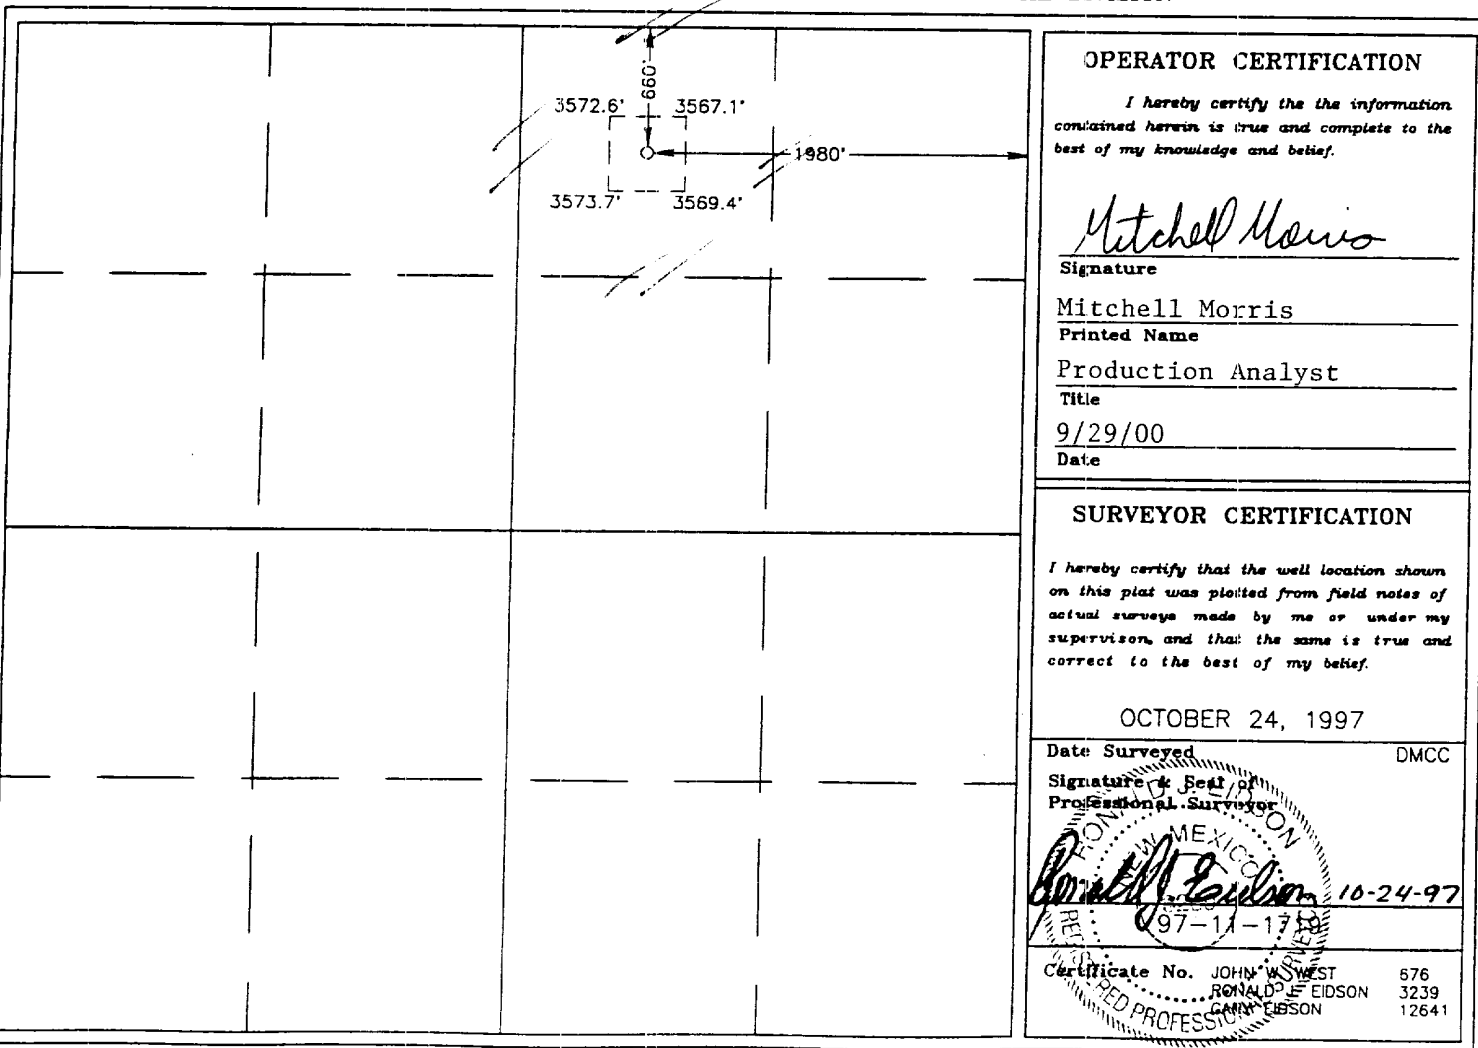 660'
3572.6' 3567.1'
1980'
3573.7' 3569.4'
OPERATOR CERTIFICATION
I hereby certify the the information
contained herein is true and complete to the
best of my knowledge and belief.
Mitchell Morris
Signature
Mitchell Morris
Printed Name
Production Analyst
Title
9/29/00
Date
SURVEYOR CERTIFICATION
I hereby certify that the well location shown
on this plat was plotted from field notes of
actual surveys made by me or under my
supervison, and that the same is true and
correct to the best of my belief.
OCTOBER 24, 1997
Date Surveyed DMCC
Signature & Seal of
Professional Surveyor
RONALD J. EIDSON
NEW MEXICO
Ronald J. Eidson 10-24-97
97-11-1719
REGISTERED PROFESSIONAL SURVEYOR
Certificate No. JOHN W. WEST 676
RONALD J. EIDSON 3239
GARY EIDSON 12641